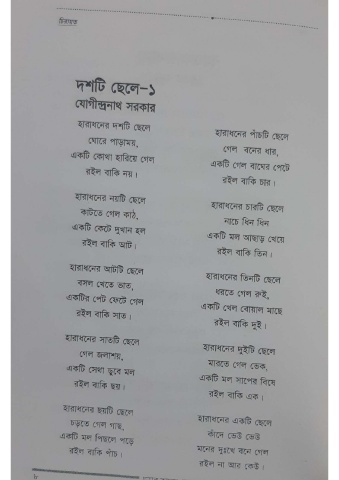 চিরায়ত
দশটি ছেলে-১
যোগীন্দ্রনাথ সরকার
হারাধনের দশটি ছেলে
ঘোরে পাড়াময়,
একটি কোথা হারিয়ে গেল
রইল বাকি নয়।
হারাধনের নয়টি ছেলে
কাটতে গেল কাঠ,
একটি কেটে দুখান হল
রইল বাকি আট।
হারাধনের আটটি ছেলে
বসল খেতে ভাত,
একটির পেট ফেটে গেল
রইল বাকি সাত।
হারাধনের সাতটি ছেলে
গেল জলাশয়,
একটি সেথা ডুবে মল
রইল বাকি ছয়।
হারাধনের ছয়টি ছেলে
চড়তে গেল গাছ,
একটি মল পিছলে পড়ে
রইল বাকি পাঁচ।
হারাধনের পাঁচটি ছেলে
গেল বনের ধার,
একটি গেল বাঘের পেটে
রইল বাকি চার।
হারাধনের চারটি ছেলে
নাচে ধিন ধিন
একটি মল আছাড় খেয়ে
রইল বাকি তিন।
হারাধনের তিনটি ছেলে
ধরতে গেল রুই,
একটি খেল বোয়াল মাছে
রইল বাকি দুই।
হারাধনের দুইটি ছেলে
মারতে গেল ভেক,
একটি মল সাপের বিষে
রইল বাকি এক।
হারাধনের একটি ছেলে
কাঁদে ভেউ ভেউ
মনের দুঃখে বনে গেল
রইল না আর কেউ।
৮